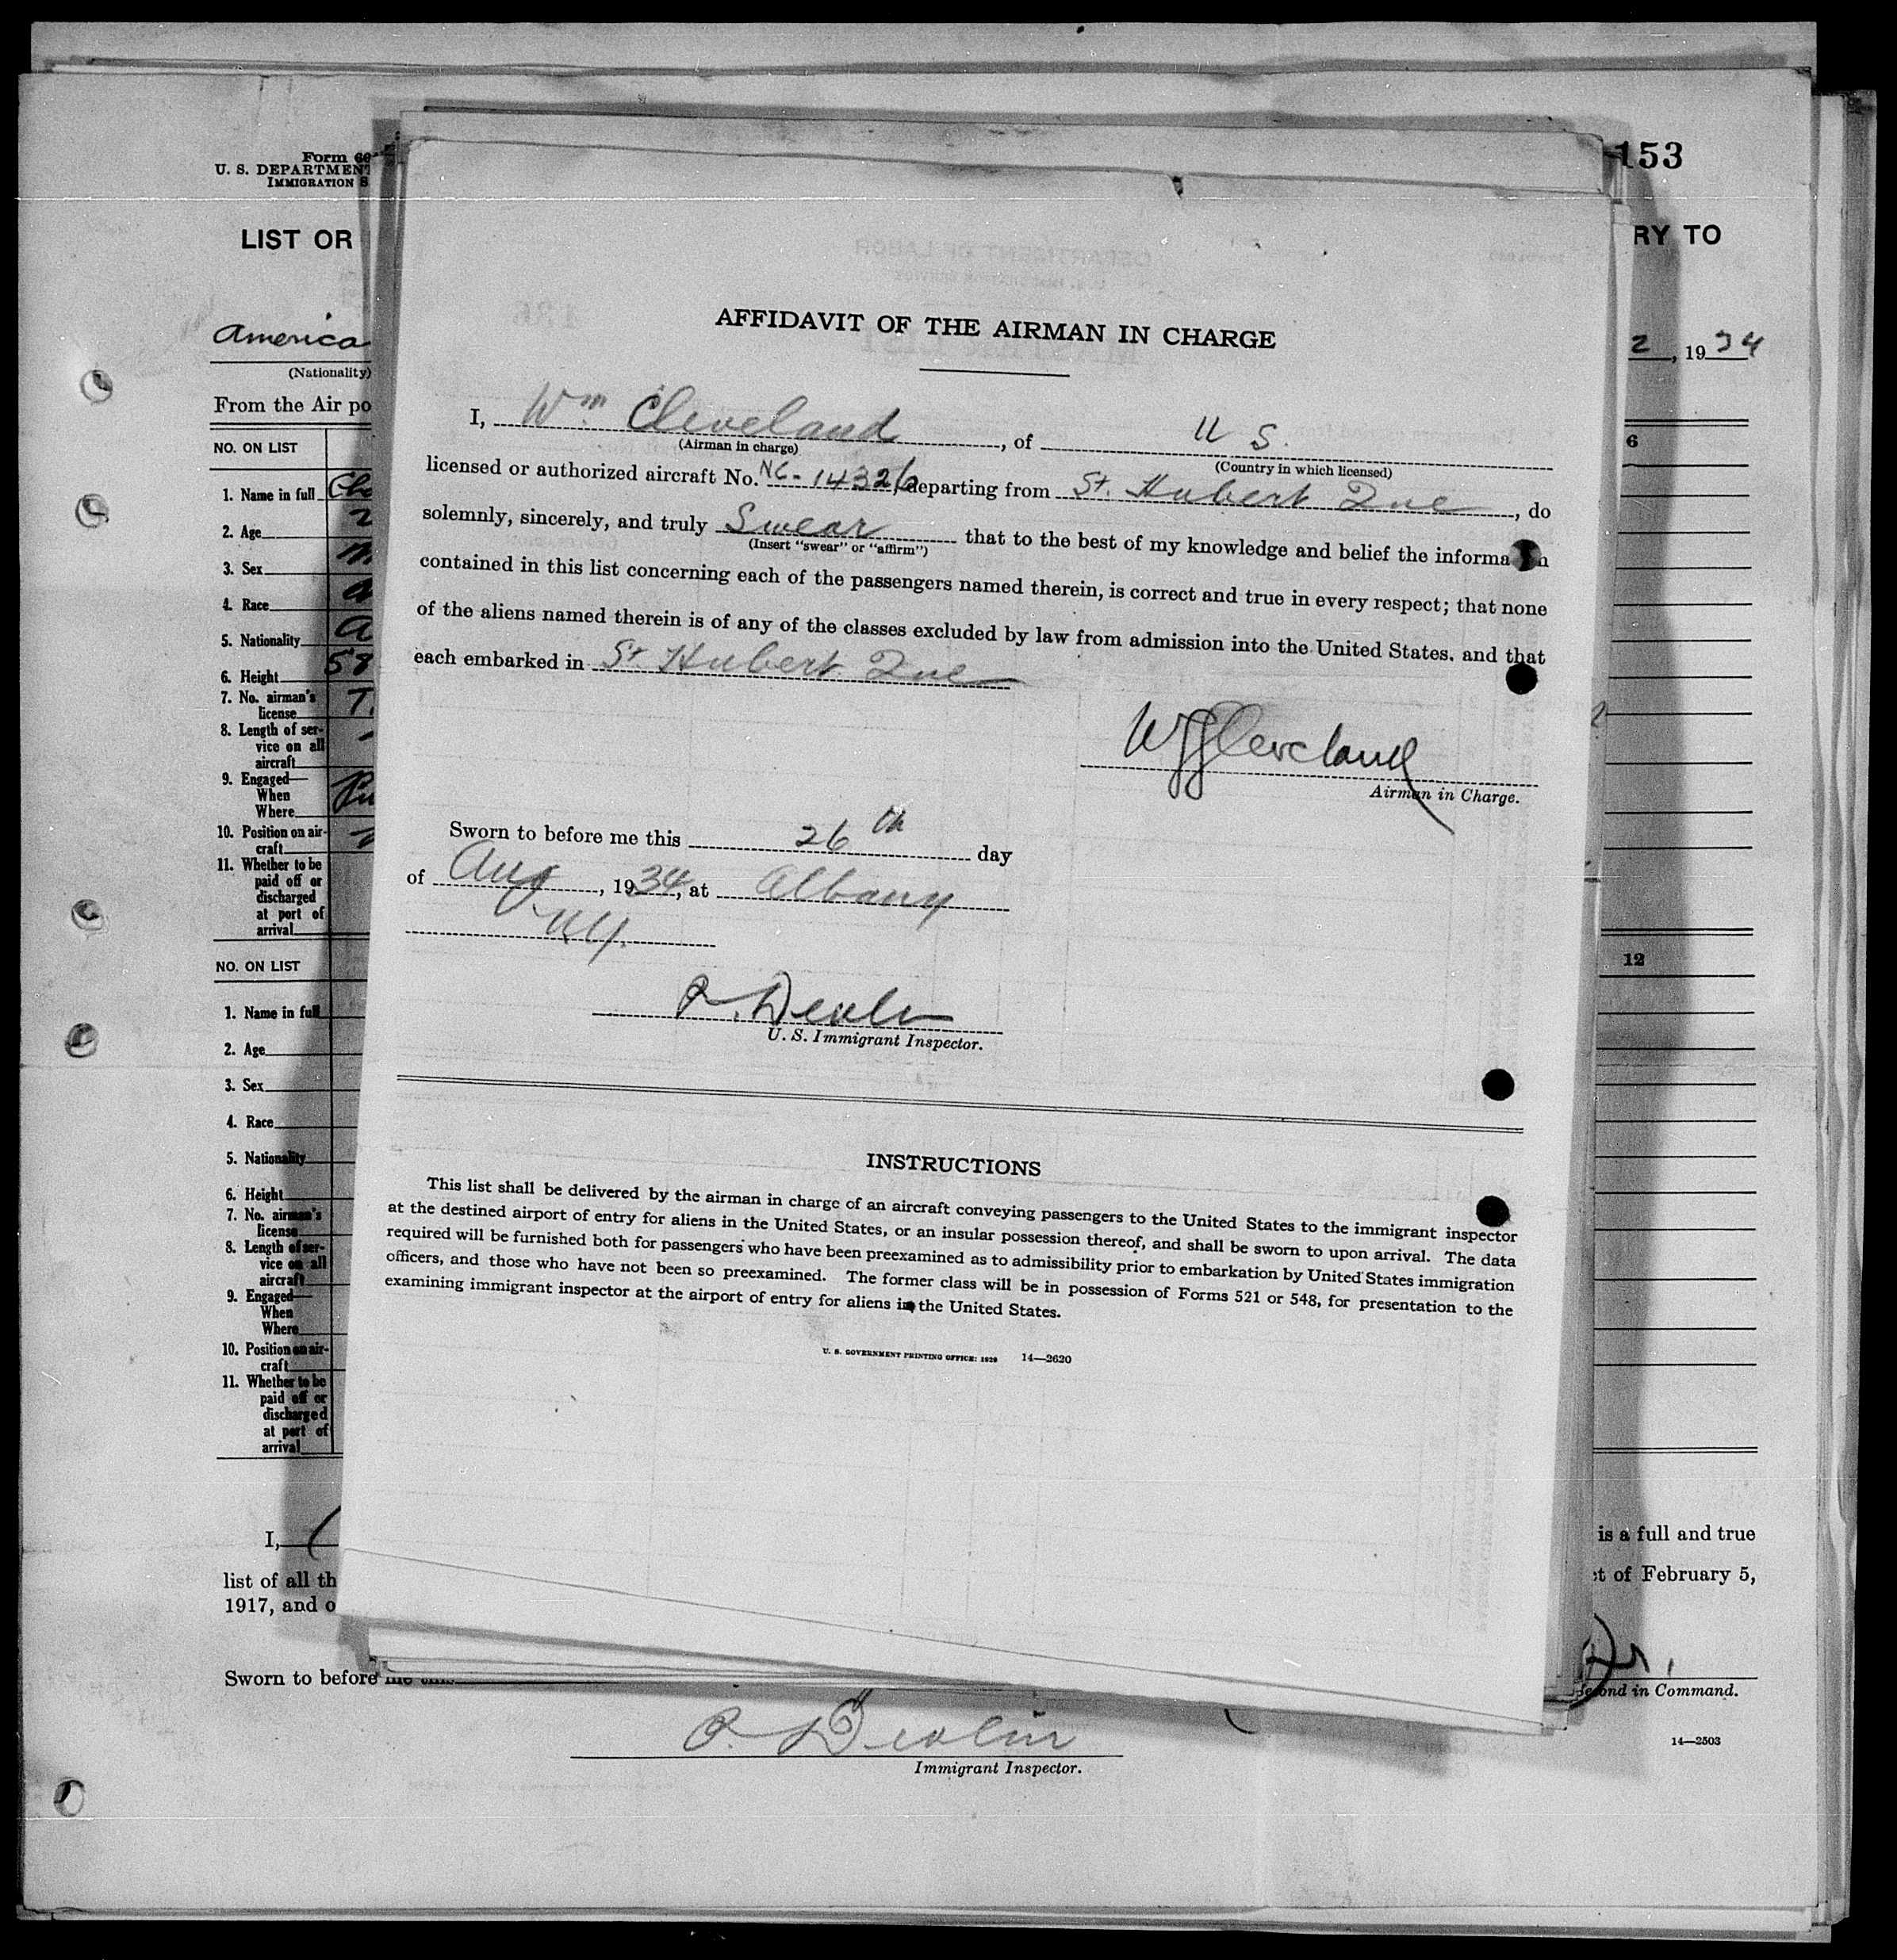 Form 60
U. S. DEPARTMENT
IMMIGRATION S
153
LIST OR
RY TO
America
(Nationality)
2, 1934
From the Air po
NO. ON LIST
6
1. Name in full
2. Age
3. Sex
4. Race
5. Nationality
6. Height 58
7. No. airman's
license
8. Length of ser-
vice on all
aircraft
9. Engaged—
When
Where
10. Position on air-
craft
11. Whether to be
paid off or
discharged
at port of
arrival
NO. ON LIST
12
1. Name in full
2. Age
3. Sex
4. Race
5. Nationality
6. Height
7. No. airman's
license
8. Length of ser-
vice on all
aircraft
9. Engaged—
When
Where
10. Position on air-
craft
11. Whether to be
paid off or
discharged
at port of
arrival
I,
is a full and true
list of all th
ct of February 5,
1917, and o
Sworn to before me this
Second in Command.
P. Devlin
Immigrant Inspector.
14—2503
AFFIDAVIT OF THE AIRMAN IN CHARGE
I, Wm Cleveland, of U S.
(Airman in charge)
(Country in which licensed)
licensed or authorized aircraft No. NC-14326, departing from St. Hubert Que, do
solemnly, sincerely, and truly Swear that to the best of my knowledge and belief the information
(Insert "swear" or "affirm")
contained in this list concerning each of the passengers named therein, is correct and true in every respect; that none
of the aliens named therein is of any of the classes excluded by law from admission into the United States, and that
each embarked in St. Hubert Que
Cleveland
Airman in Charge.
Sworn to before me this 26th day
of Aug, 1934, at Albany
NY.
P. Devlin
U. S. Immigrant Inspector.
INSTRUCTIONS
This list shall be delivered by the airman in charge of an aircraft conveying passengers to the United States to the immigrant inspector
at the destined airport of entry for aliens in the United States, or an insular possession thereof, and shall be sworn to upon arrival. The data
required will be furnished both for passengers who have been preexamined as to admissibility prior to embarkation by United States immigration
officers, and those who have not been so preexamined. The former class will be in possession of Forms 521 or 548, for presentation to the
examining immigrant inspector at the airport of entry for aliens in the United States.
U. S. GOVERNMENT PRINTING OFFICE: 1929 14—2620